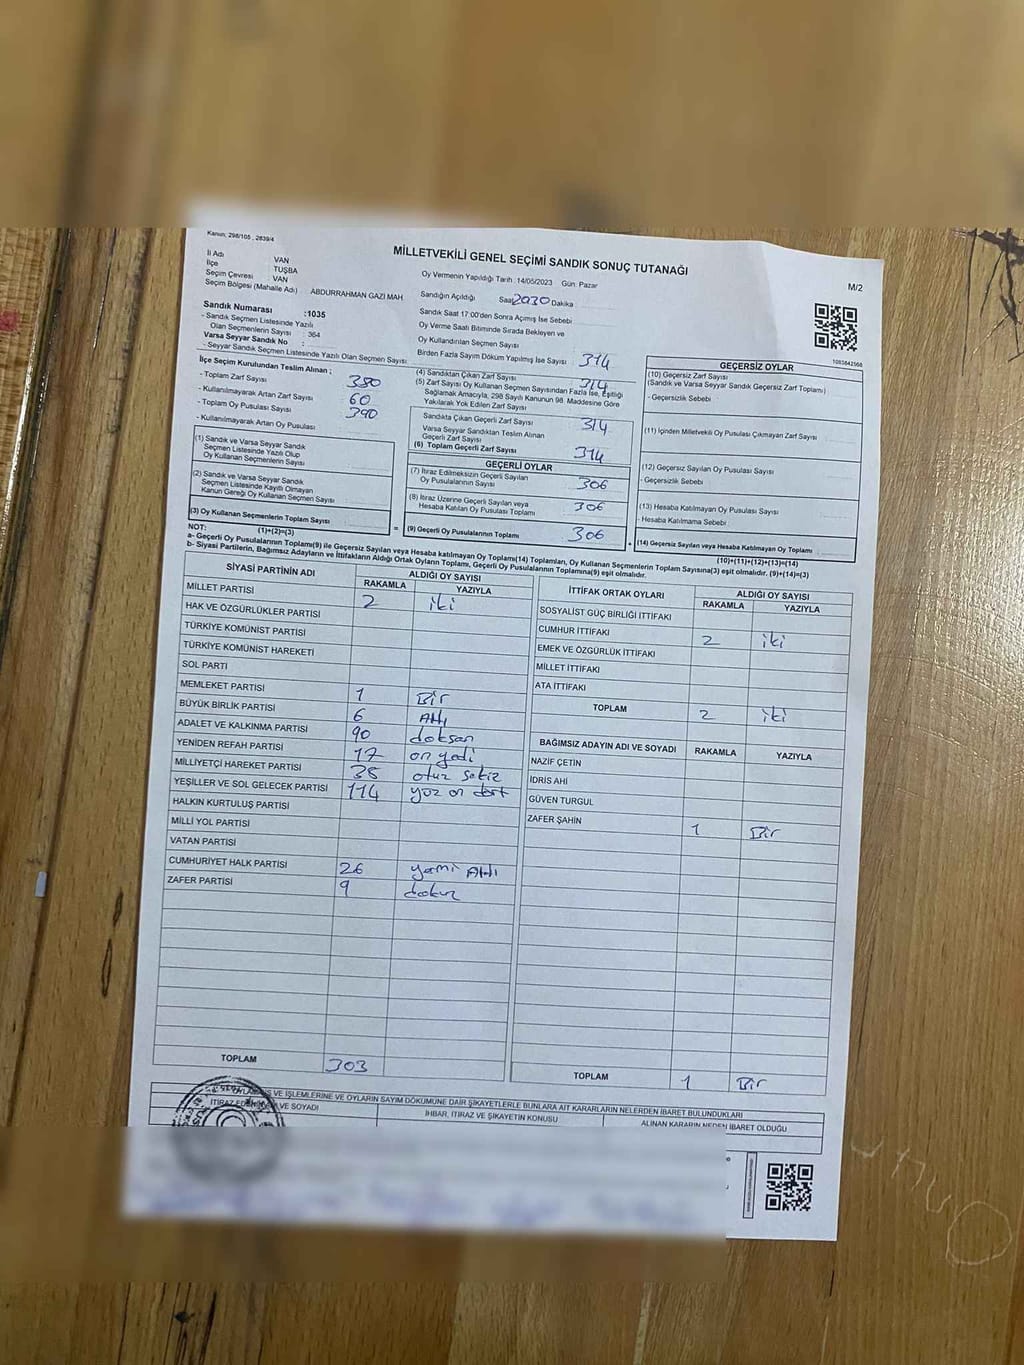 Kanun; 298/105 , 2839/4
MİLLETVEKİLİ GENEL SEÇİMİ SANDIK SONUÇ TUTANAĞI
M/2
İl Adı VAN
İlçe TUŞBA
Seçim Çevresi VAN
Seçim Bölgesi (Mahalle Adı) ABDURRAHMAN GAZI MAH
Oy Vermenin Yapıldığı Tarih : 14/05/2023 Gün: Pazar
Sandığın Açıldığı Saat 2030 Dakika
Sandık Saat 17:00'den Sonra Açımış İse Sebebi
Oy Verme Saati Bitiminde Sırada Bekleyen ve
Oy Kullandırılan Seçmen Sayısı
Birden Fazla Sayım Döküm Yapılmış İse Sayısı 314
1083842568
Sandık Numarası :1035
- Sandık Seçmen Listesinde Yazılı
Olan Seçmenlerin Sayısı : 364
Varsa Seyyar Sandık No :
- Seyyar Sandık Seçmen Listesinde Yazılı Olan Seçmen Sayısı
İlçe Seçim Kurulundan Teslim Alınan ;
- Toplam Zarf Sayısı 380
- Kullanılmayarak Artan Zarf Sayısı 60
- Toplam Oy Pusulası Sayısı 390
- Kullanılmayarak Artan Oy Pusulası
(1) Sandık ve Varsa Seyyar Sandık
Seçmen Listesinde Yazılı Olup
Oy Kullanan Seçmenlerin Sayısı
(2) Sandık ve Varsa Seyyar Sandık
Seçmen Listesinde Kayıtlı Olmayan
Kanun Gereği Oy Kullanan Seçmen Sayısı
(3) Oy Kullanan Seçmenlerin Toplam Sayısı
(1)+(2)=(3)
(4) Sandıktan Çıkan Zarf Sayısı 314
(5) Zarf Sayısı Oy Kullanan Seçmen Sayısından Fazla İse, Eşitliği
Sağlamak Amacıyla, 298 Sayılı Kanunun 98. Maddesine Göre
Yakılarak Yok Edilen Zarf Sayısı
Sandıkta Çıkan Geçerli Zarf Sayısı 314
Varsa Seyyar Sandıktan Teslim Alınan
Geçerli Zarf Sayısı
(6) Toplam Geçerli Zarf Sayısı 314
GEÇERLİ OYLAR
(7) İtiraz Edilmeksizin Geçerli Sayılan
Oy Pusulalarının Sayısı 306
(8) İtiraz Üzerine Geçerli Sayılan veya
Hesaba Katılan Oy Pusulası Toplamı 306
= (9) Geçerli Oy Pusulalarının Toplamı 306 +
GEÇERSİZ OYLAR
(10) Geçersiz Zarf Sayısı
(Sandık ve Varsa Seyyar Sandık Geçersiz Zarf Toplamı)
- Geçersizlik Sebebi
(11) İçinden Milletvekili Oy Pusulası Çıkmayan Zarf Sayısı
(12) Geçersiz Sayılan Oy Pusulası Sayısı
- Geçersizlik Sebebi
(13) Hesaba Katılmayan Oy Pusulası Sayısı
- Hesaba Katılmama Sebebi
(14) Geçersiz Sayılan veya Hesaba Katılmayan Oy Toplamı
(10)+(11)+(12)+(13)=(14)
NOT:
a- Geçerli Oy Pusulalarının Toplamı(9) ile Geçersiz Sayılan veya Hesaba katılmayan Oy Toplamı(14) Toplamları, Oy Kullanan Seçmenlerin Toplam Sayısına(3) eşit olmalıdır. (9)+(14)=(3)
b- Siyasi Partilerin, Bağımsız Adayların ve İttifakların Aldığı Ortak Oyların Toplamı, Geçerli Oy Pusulalarının Toplamına(9) eşit olmalıdır.
SİYASİ PARTİNİN ADI ALDIĞI OY SAYISI
RAKAMLA YAZIYLA
MİLLET PARTİSİ 2 iki
HAK VE ÖZGÜRLÜKLER PARTİSİ
TÜRKİYE KOMÜNİST PARTİSİ
TÜRKİYE KOMÜNİST HAREKETİ
SOL PARTİ
MEMLEKET PARTİSİ 1 Bir
BÜYÜK BİRLİK PARTİSİ 6 Altı
ADALET VE KALKINMA PARTİSİ 90 doksan
YENİDEN REFAH PARTİSİ 17 on yedi
MİLLİYETÇİ HAREKET PARTİSİ 38 otuz sekiz
YEŞİLLER VE SOL GELECEK PARTİSİ 114 yüz on dört
HALKIN KURTULUŞ PARTİSİ
MİLLİ YOL PARTİSİ
VATAN PARTİSİ
CUMHURİYET HALK PARTİSİ 26 yirmi Altı
ZAFER PARTİSİ 9 dokuz
TOPLAM 303
İTTİFAK ORTAK OYLARI ALDIĞI OY SAYISI
RAKAMLA YAZIYLA
SOSYALİST GÜÇ BİRLİĞİ İTTİFAKI
CUMHUR İTTİFAKI 2 iki
EMEK VE ÖZGÜRLÜK İTTİFAKI
MİLLET İTTİFAKI
ATA İTTİFAKI
TOPLAM 2 iki
BAĞIMSIZ ADAYIN ADI VE SOYADI RAKAMLA YAZIYLA
NAZİF ÇETİN
İDRİS AHİ
GÜVEN TURGUL
ZAFER ŞAHİN 1 Bir
TOPLAM 1 Bir
VE İŞLEMLERİNE VE OYLARIN SAYIM DÖKÜMÜNE DAİR ŞİKAYETLERLE BUNLARA AİT KARARLARIN NELERDEN İBARET BULUNDUKLARI
İTİRAZ EDENİN ADI VE SOYADI İHBAR, İTİRAZ VE ŞİKAYETİN KONUSU ALINAN KARARIN NEDEN İBARET OLDUĞU